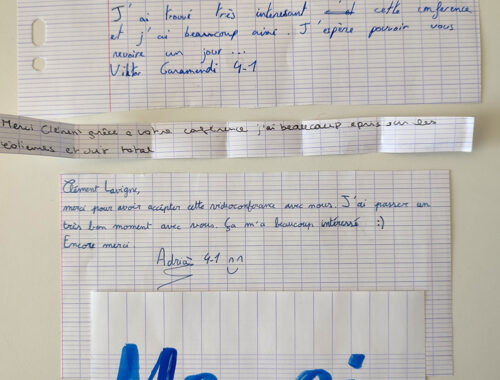 J'ai trouvé très intéressant cette conférence
et j'ai beaucoup aimé. J'espère pouvoir vous
revoire un jour...
Viktor Garamendi 4-1
Merci Clément grâce a votre conférence j'ai beaucoup apris sur les
éoliennes et sur total
Clément Lavigne,
merci pour avoir accepter cette vidioconferance avec nous. J'ai passer un
très bon moment avec vous. Ça m'a beaucoup intéressé :)
Encore merci
Adrià 4-1